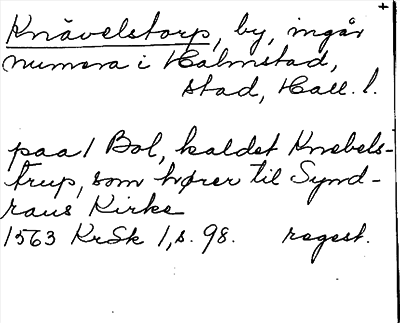 Knävelstorp, by, ingår +
numera i Halmstad,
stad, Hall. l.
paa 1 Bol, kaldet Knebels-
trup, som hører til Synd-
raus Kirke
1563 KrSk 1, s. 98. regest.